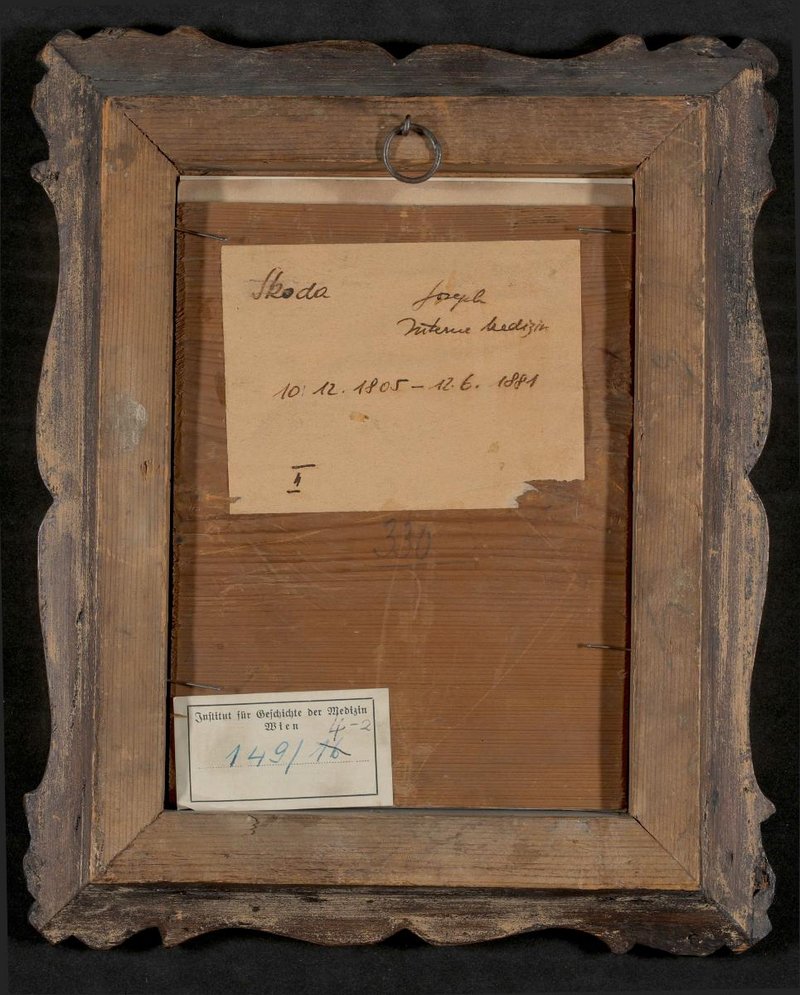 Skoda Joseph
Interne Medizin
10. 12. 1805 – 12. 6. 1881
330
Institut für Geschichte der Medizin
Wien
4-2
149/16